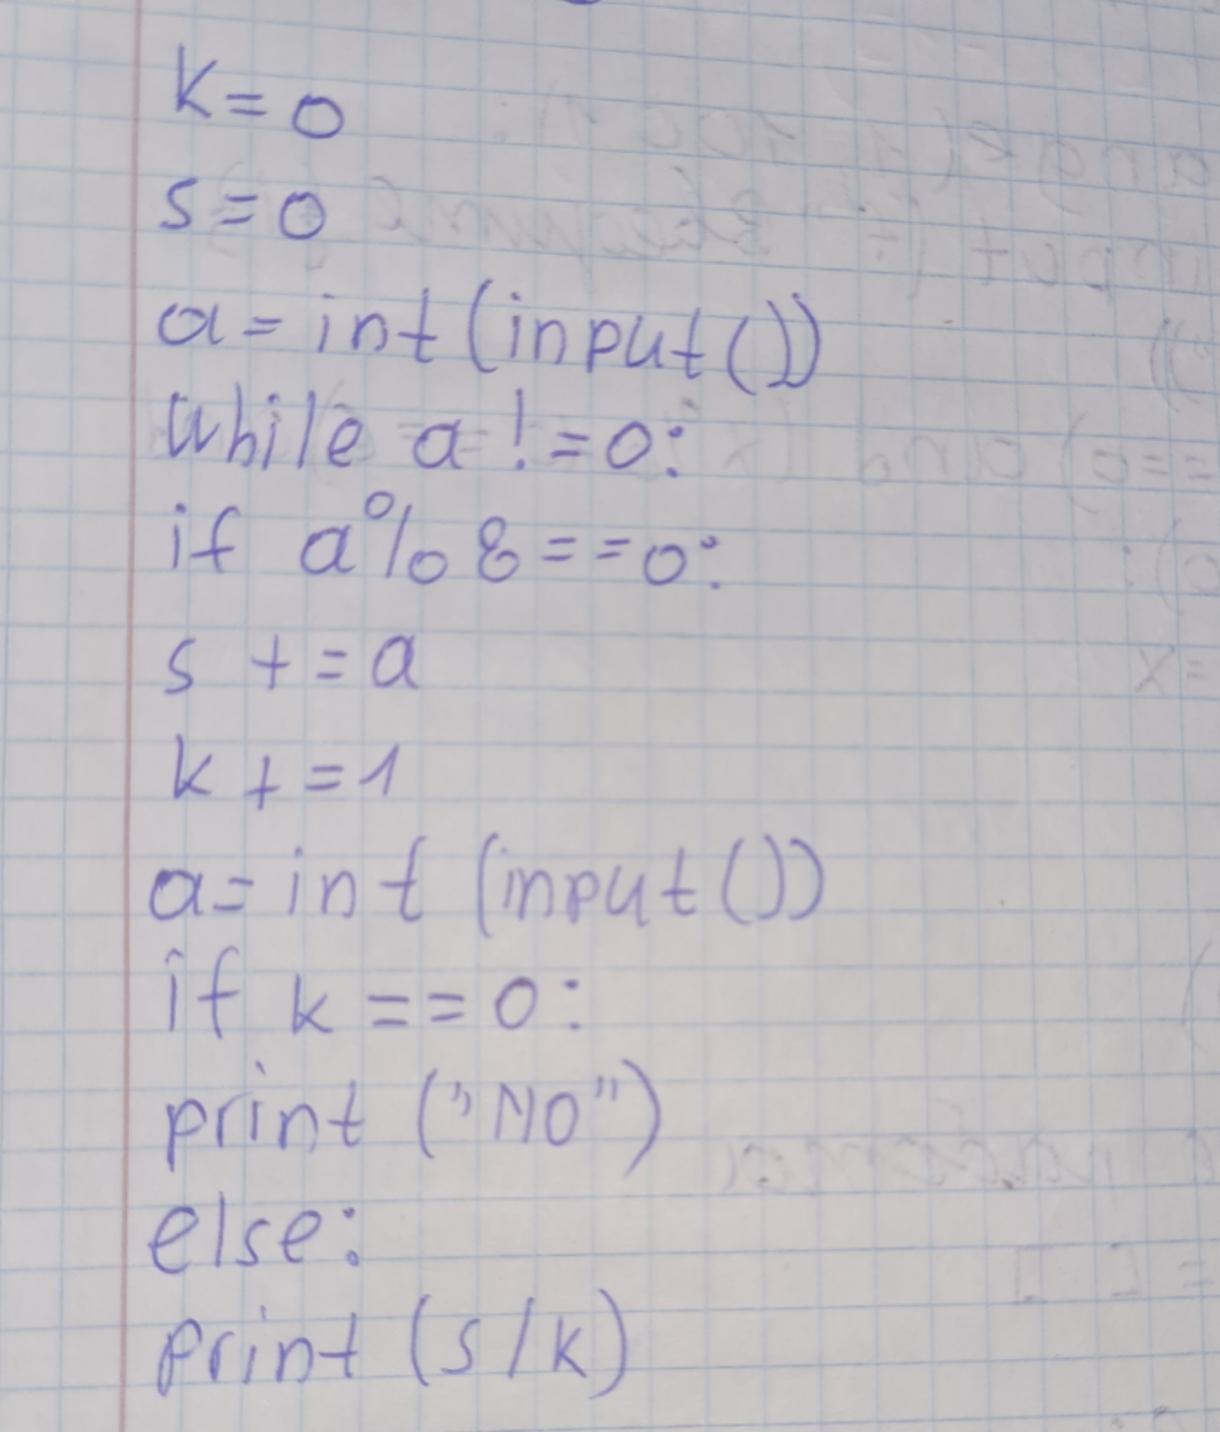 k=0
s=0
a=int(input())
while a !=0:
if a%8==0:
s +=a
k +=1
a=int (input())
if k ==0:
print ("NO")
else:
print (s/k)